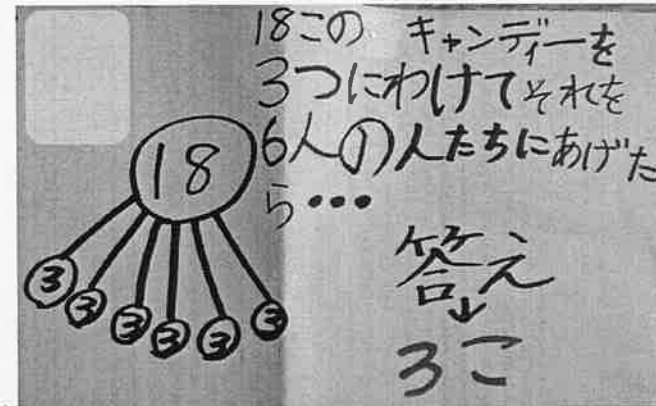 18この キャンディーを
3つにわけてそれを
6人の人たちにあげた
ら・・・
18
3
3
3
3
3
3
答え
↓
3こ